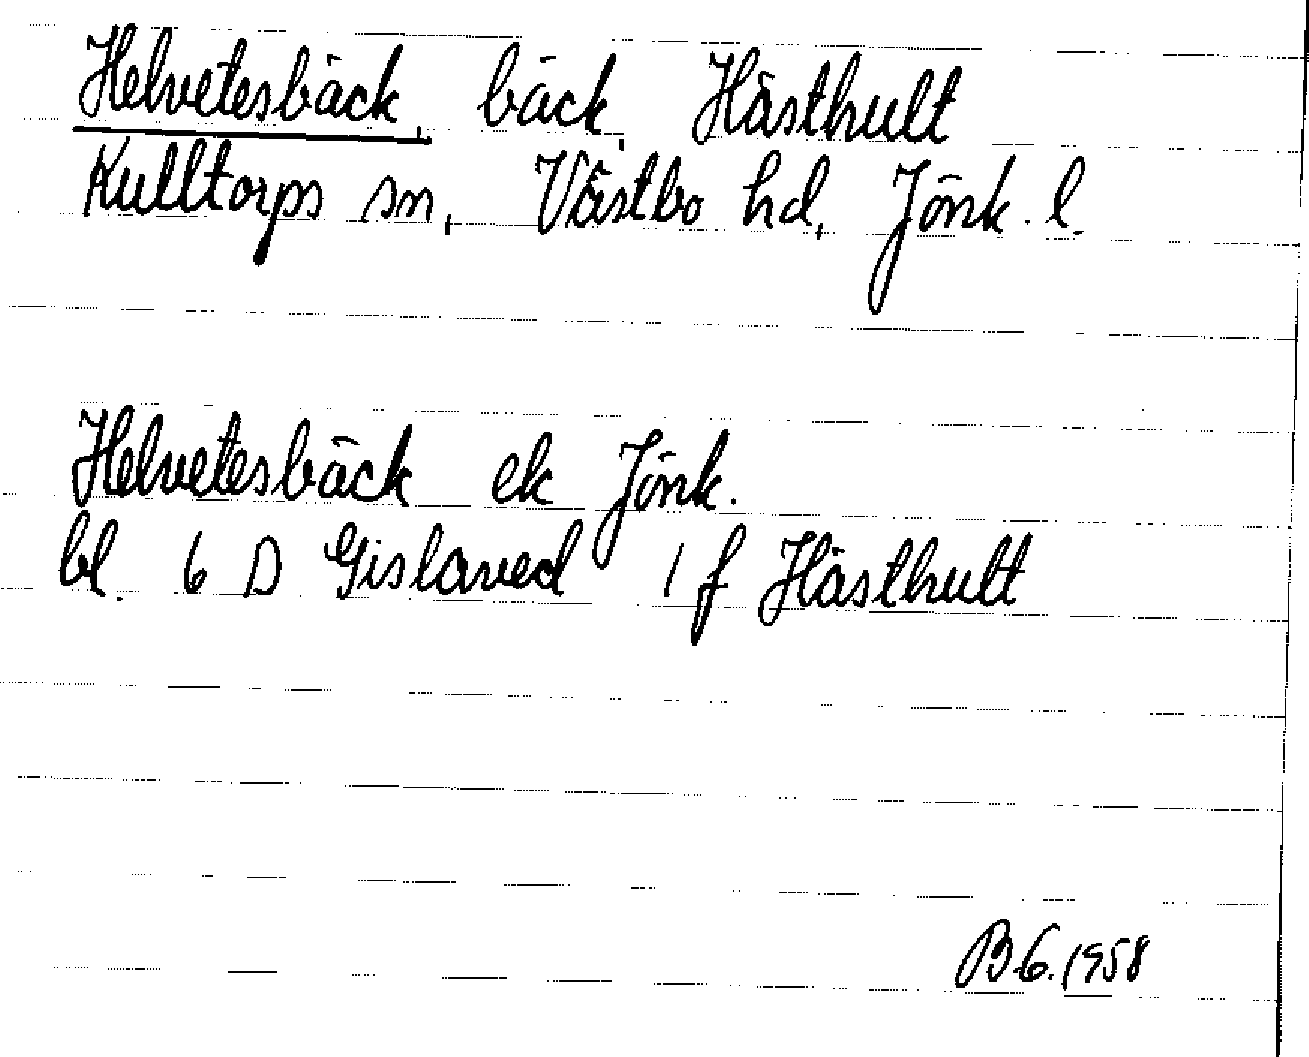 Helvetesbäck, bäck, Hästhult
Kulltorps sn, Västbo hd, Jönk. l.
Helvetesbäck ek Jönk.
bl. 6 D Gislaved 1 f Hästhult
BG. 1958